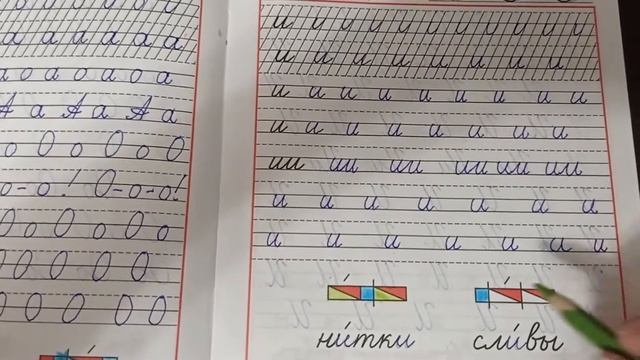 а а а а а а
а о а о а о а
А а А а А а
о О о О о О
о-о! О-о-о!
О о О о О о
О О О О О О
О О О О О О
и и и и и и и и и и и
и и и и и и и и
и и и и и и и и и
и и и и и и и и
ии ии ии ии ии ии
и и и и и и и
и и и и и и и
ни́тки сли́вы